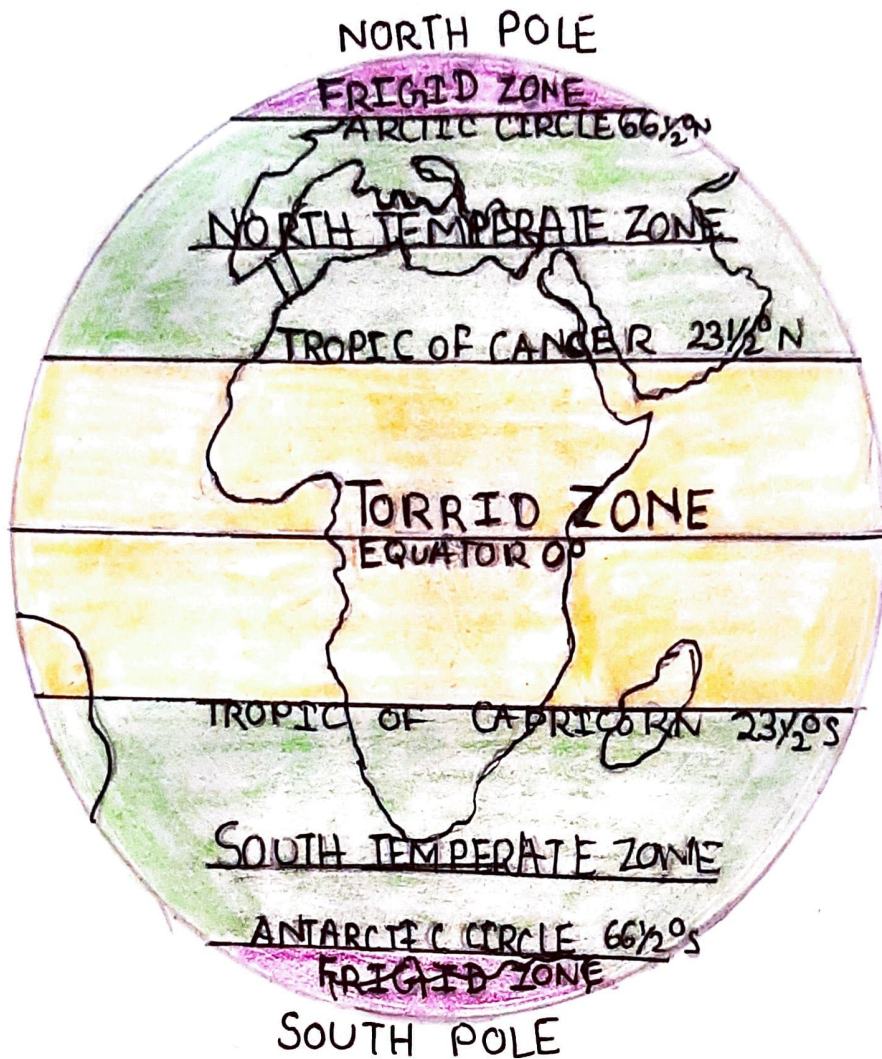 NORTH POLE
FRIGID ZONE
ARCTIC CIRCLE 66½°N
NORTH TEMPERATE ZONE
TROPIC OF CANCER 23½°N
TORRID ZONE
EQUATOR 0°
TROPIC OF CAPRICORN 23½°S
SOUTH TEMPERATE ZONE
ANTARCTIC CIRCLE 66½°S
FRIGID ZONE
SOUTH POLE